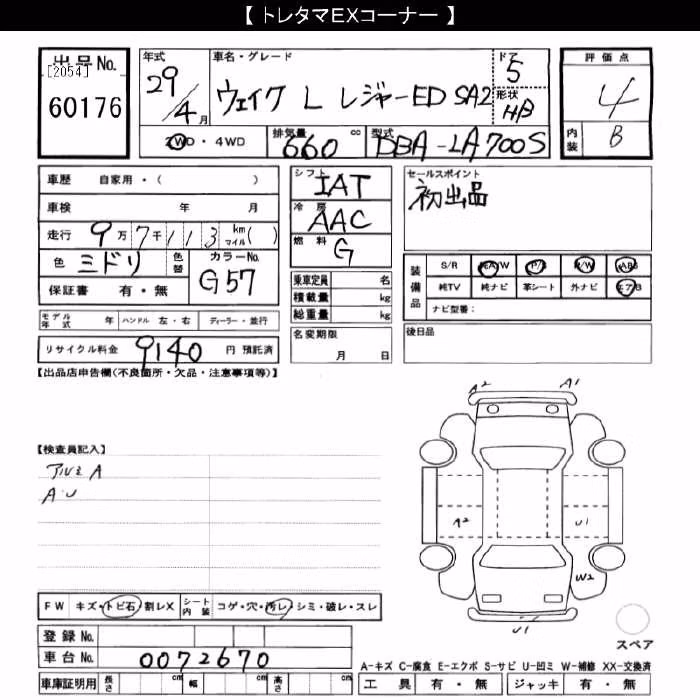 【 トレタマEXコーナー 】
出品No.
[2054]
60176
年式
29/4月
車名・グレード
ウェイク L レジャーED SA2
ドア
5
形状
HB
2WD・4WD
排気量
660 cc
型式
DBA-LA700S
評価点
4
内装
B
車歴 自家用・( )
車検 年 月
走行 9万7千113 km マイル( )
色 ミドリ
色替
カラーNo.
G57
保証書 有・無
モデル年式 年 ハンドル 左・右 ディーラー・並行
リサイクル料金 9140 円 預託済
シフト
IAT
冷房
AAC
燃料
G
乗車定員 名
積載量 kg
総重量 kg
名変期限
月 日
セールスポイント
初出品
装備品
S/R 純A/W P/S P/W ABS
純TV 純ナビ 革シート 外ナビ エアB
ナビ型番:
後日品
【出品店申告欄(不良箇所・欠品・注意事項等)】
A2 A1
【検査員記入】
アルミ A
A・U
A2 U1
W2
U1
FW キズ・トビ石・割レX
シート内装 コゲ・穴・汚レ・シミ・破レ・スレ
スペア
登録No.
車台No. 0072670
車庫証明用 長さ cm 幅 cm 高さ cm
A-キズ C-腐食 E-エクボ S-サビ U-凹ミ W-補修 XX-交換済
工具 有・無 ジャッキ 有・無